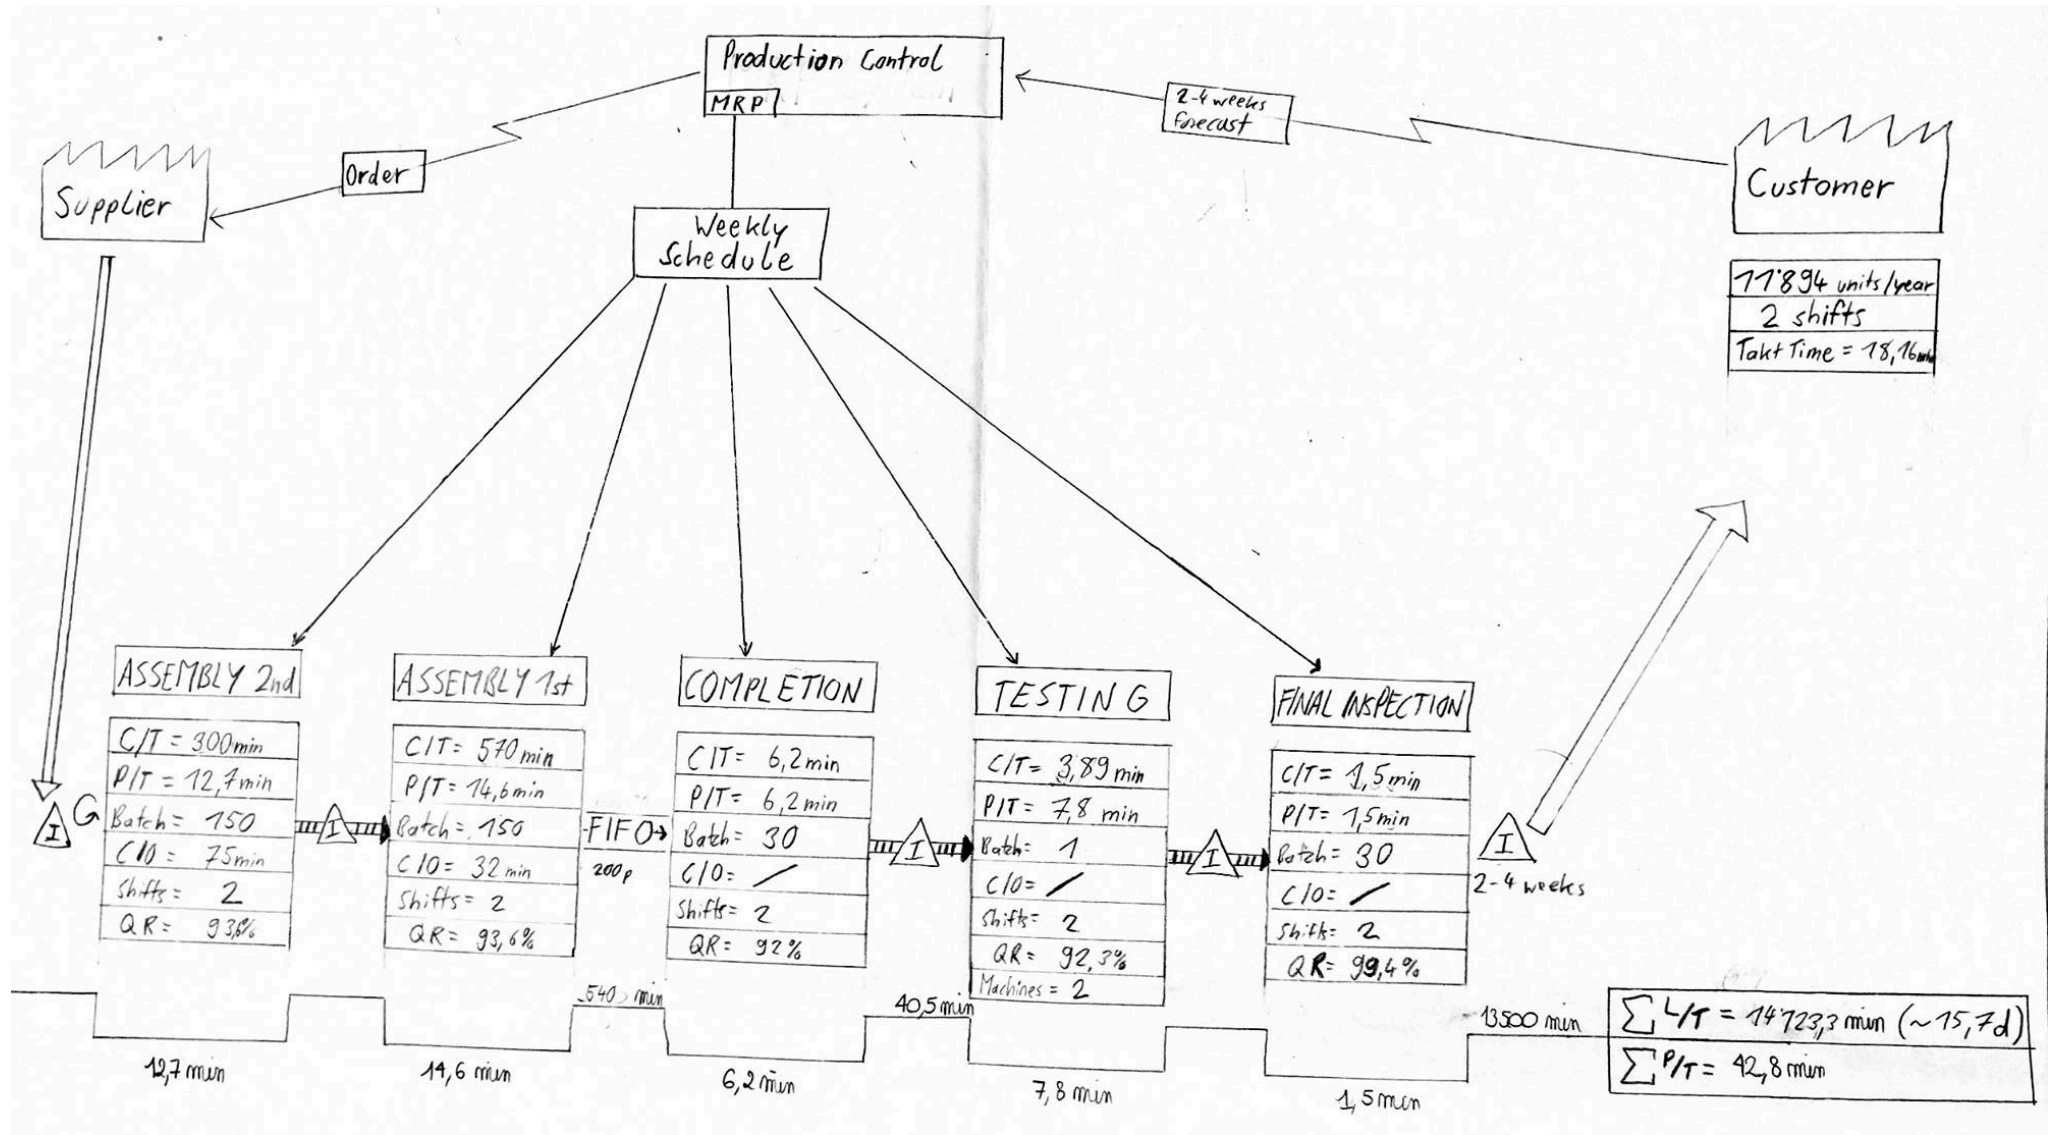 Production Control
MRP
2-4 weeks
forecast
Order
Supplier
Customer
Weekly
Schedule
11'894 units/year
2 shifts
Takt Time = 18,16min
ASSEMBLY 2nd
C/T = 300min
P/T = 12,7min
Batch = 150
C/O = 75min
Shifts = 2
QR = 93,6%
ASSEMBLY 1st
C/T = 570min
P/T = 14,6min
Batch = 150
C/O = 32min
Shifts = 2
QR = 93,6%
COMPLETION
C/T = 6,2min
P/T = 6,2min
Batch = 30
C/O = /
Shifts = 2
QR = 92%
TESTING
C/T = 3,89min
P/T = 7,8 min
Batch = 1
C/O = /
Shifts = 2
QR = 92,3%
Machines = 2
FINAL INSPECTION
C/T = 1,5min
P/T = 1,5min
Batch = 30
C/O = /
Shifts = 2
QR = 99,4%
I
I
FIFO
200p
I
I
I
2-4 weeks
540 min
40,5min
13500 min
12,7min
14,6 min
6,2 min
7,8 min
1,5min
∑ L/T = 14'123,3 min (~15,7d)
∑ P/T = 42,8 min